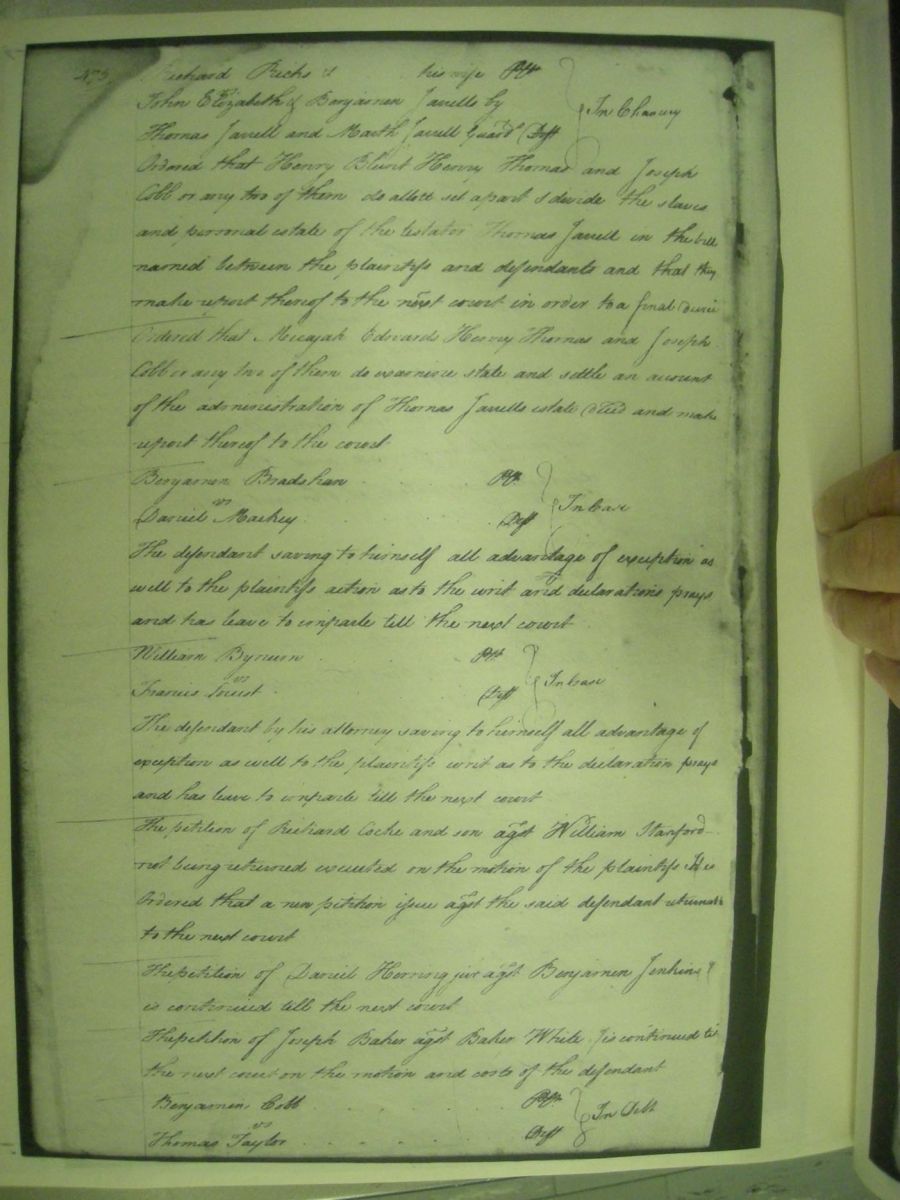 Richard Ricks & his wife Plts
John Elizabeth & Benjamen Jarrells by
In Chancery
Thomas Jarrell and Jarrell Guard Deft
Ordered that Henry Blunt Henry Thomas and Joseph
Cobb or any two of them do allott set apart & devide the slaves
and personal estate of the testator Thomas Jarrell in the bill
named between the plaintifs and defendants and that they
make report thereof to the next court in order to a final
Ordered that Micajah Edwards Henry Thomas and Joseph
Cobb or any two of them do examine state and settle an account
of the administration of Thomas Jarrells estate and make
report thereof to the court
Benjamen Bradshaw Plt
vs
In Case
Daniel Mackey Deft
The defendant saving to himself all advantage of exception as
well to the plaintifs action as to the writ and declarations prays
and has leave to imparle tell the next court
William Bynum Plt
vs
In Case
Francis Deft
The defendant by his attorney saving to himself all advantage of
exception as well to the plaintifs writ as to the declaration prays
and has leave to imparle till the next court
The petition of Richard Cocke and son agst William Stanford
not being returned executed on the motion of the plaintifs it is
Ordered that a new petition issue agst the said defendant
to the next court
The petition of Daniel Herring junr agst Benjamen Jenkins
is continued till the next court
The petition of Joseph Baker agst Baker White is continued
the next court on the motion and costs of the defendant
Benjamen Cobb Plt
vs
In Debt
Thomas Taylor Deft